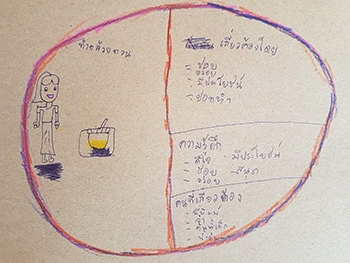 ทำกล้วยกวน
เกี่ยวข้องโดย
- ชอบ
อร่อย
- มีประโยชน์
- ชอบทำ
ความรู้สึก
- ดีใจ - มีประโยชน์
- ชอบ - สนุก
- อร่อย
คนที่เกี่ยวข้อง